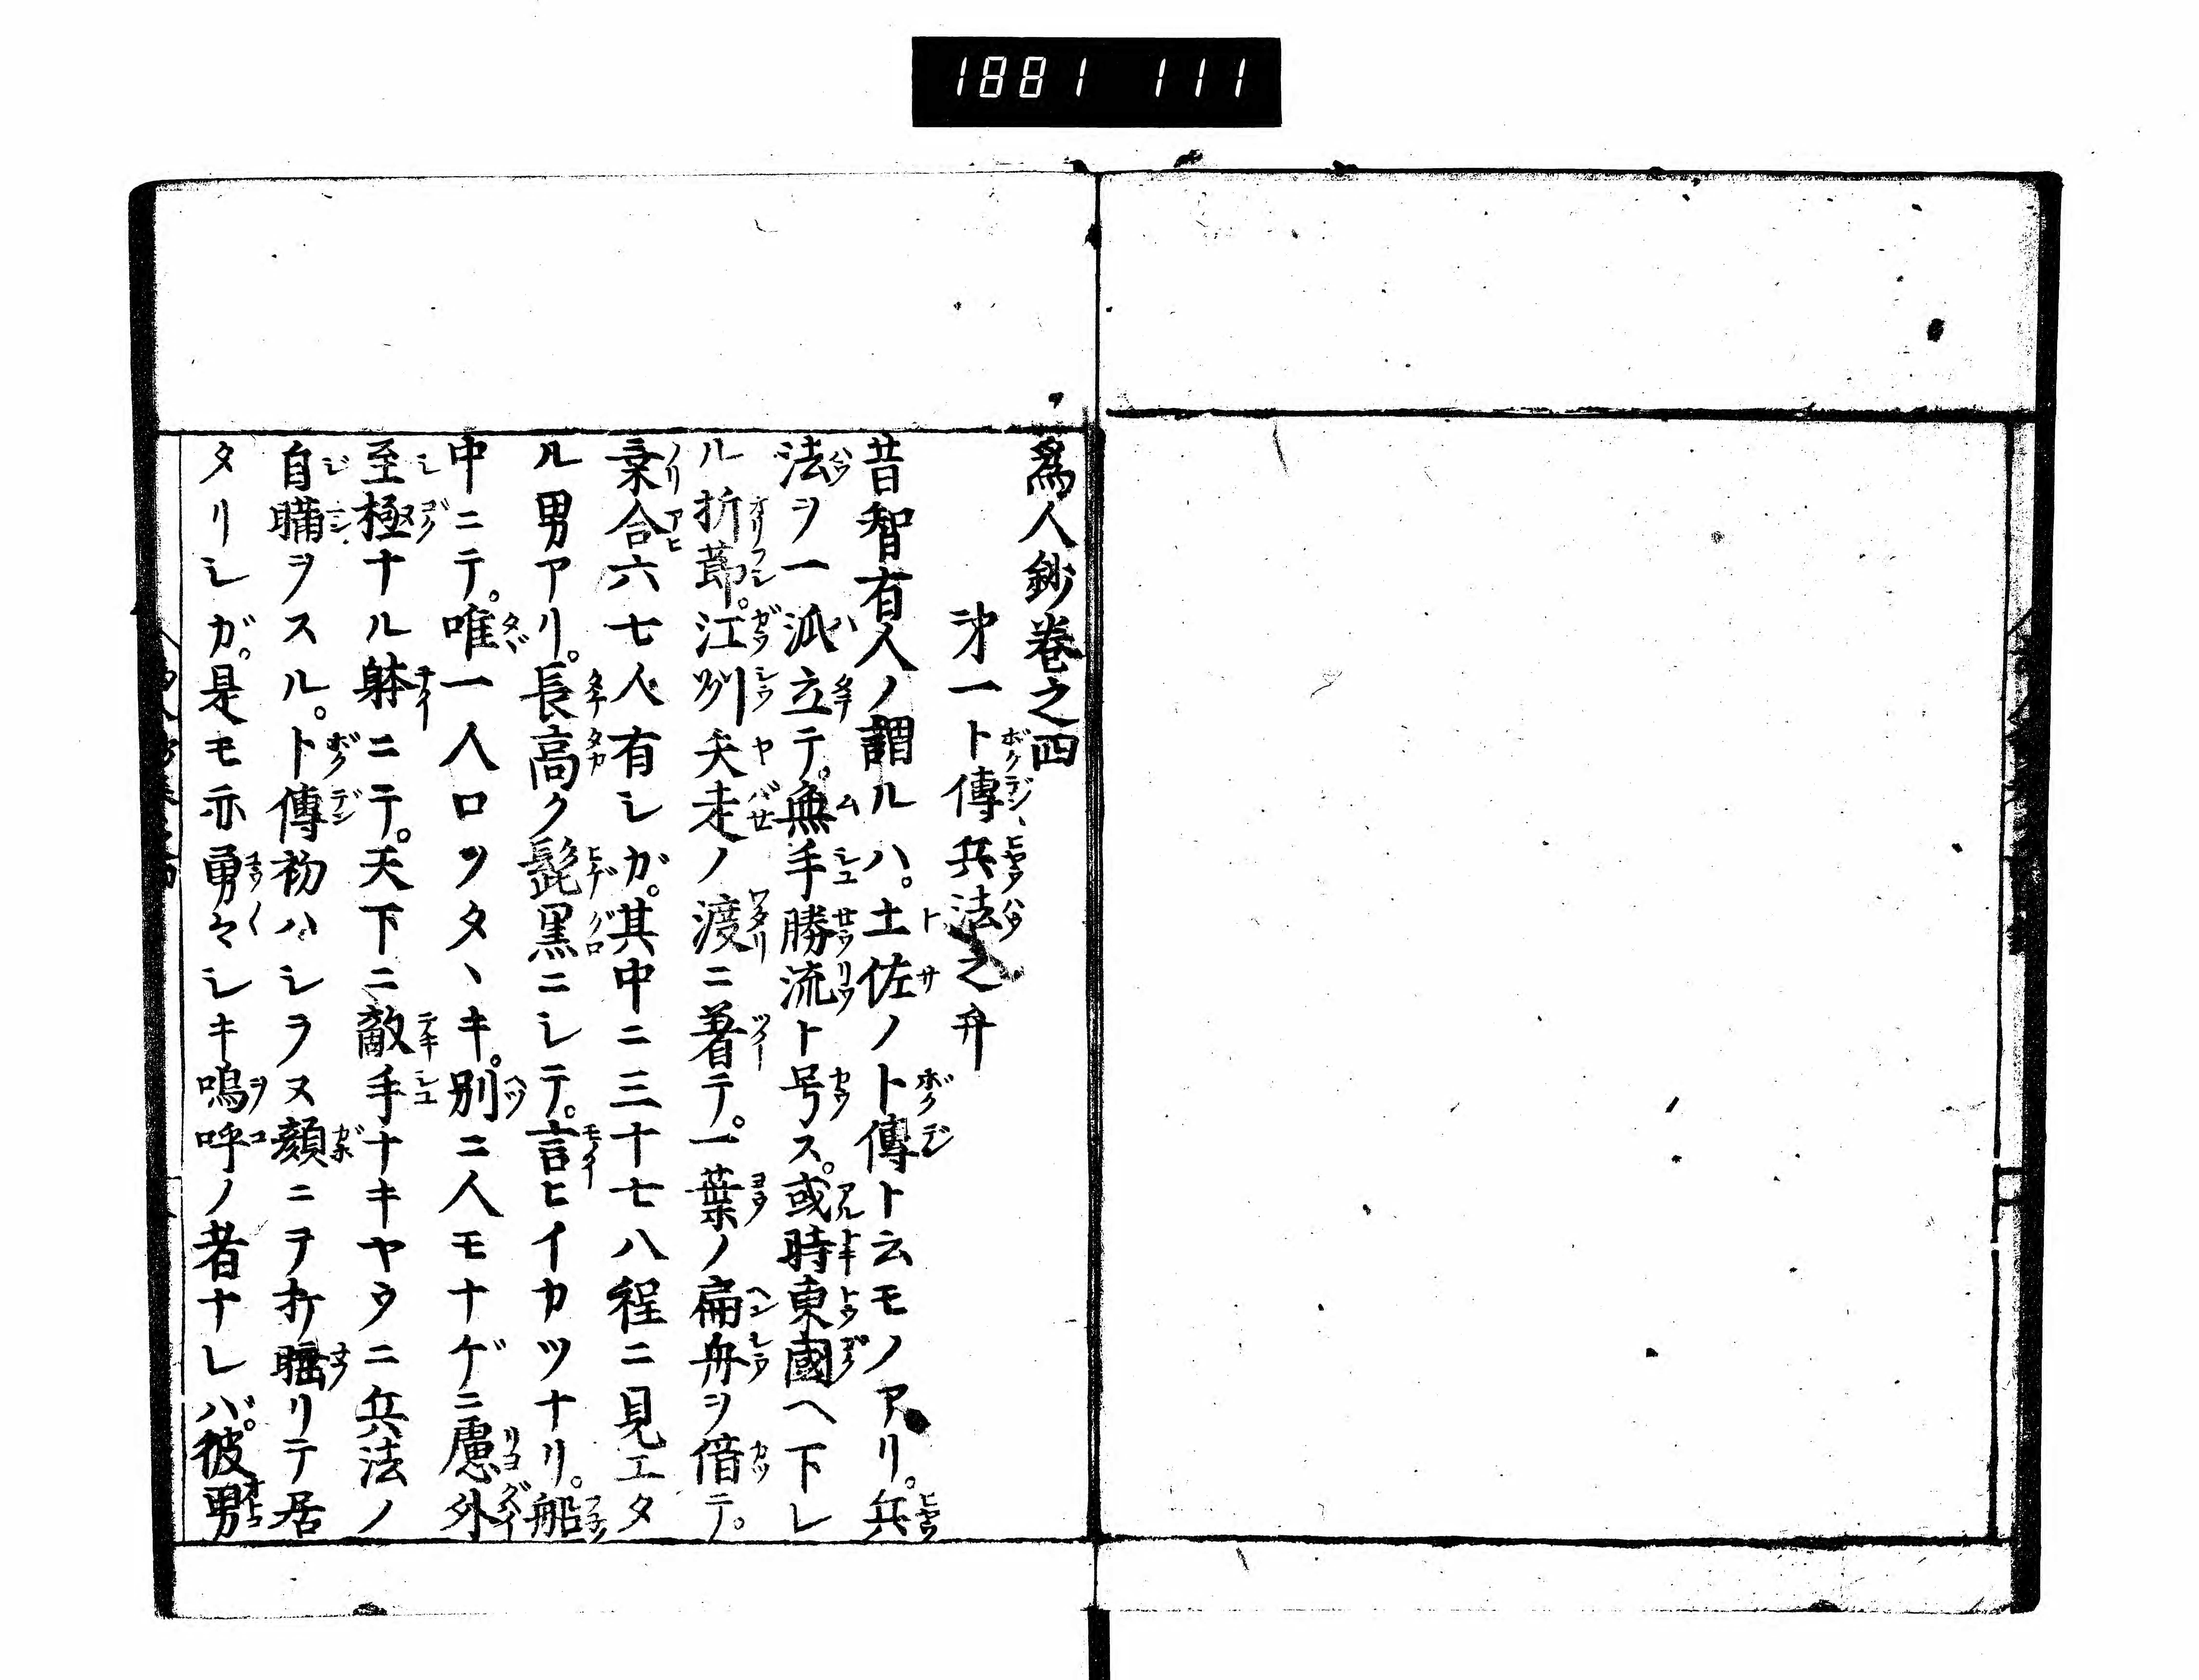 1881 111
為人鈔巻之四
㐧一卜傳兵法之弁
昔智有人ノ謂ルハ。土佐ノ卜傳ト云モノアリ。兵
法ヲ一派立テ。無手勝流ト号ス。或時東國ヘ下レ
ル折莭。江州矢走ノ渡ニ著テ。一葉ノ扁舟ヲ借テ。
乗合六七人有シガ。其中ニ三十七八程ニ見エタ
ル男アリ。長高ク髭黒ニシテ。言ヒイカツナリ。船
中ニテ。唯一人口ヲタヽキ。別ニ人モナゲニ慮外
至極ナル躰ニテ。天下ニ敵手ナキヤウニ兵法ノ
自ヲスル。卜傳初ハシラヌ顔ニテ打眠リテ居
タリシガ。是モ亦勇々シキ嗚呼ノ者ナレバ。彼男